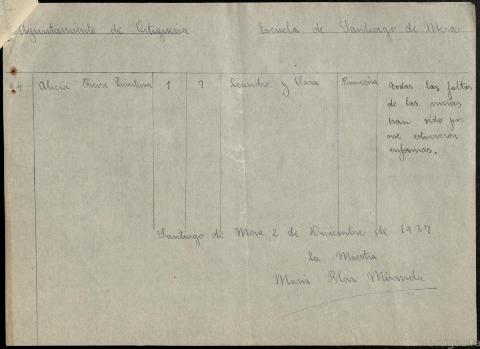 Ayuntamiento de Ortigueira Escuela de Santiago de Mera
24 Alicia 1 7 Leandro y Clara
todas las faltas
de las niñas
han sido por
que estuvieron
enfermas.
Santiago de Mera 2 de Diciembre de 1937
La Maestra
María Blas Miranda